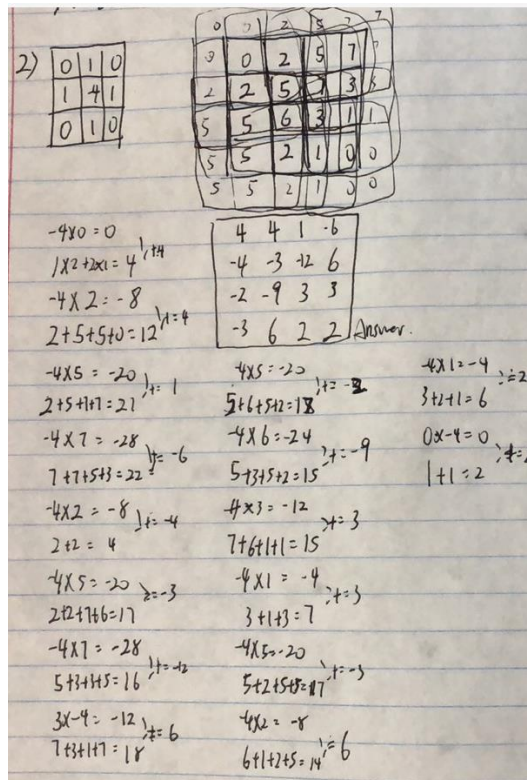 2)
0 1 0
1 4 1
0 1 0
0 0 2 5 7 7
0 0 2 5 7
2 2 5 7 3 3
5 5 6 3 1 1
5 5 2 1 0 0
5 5 2 1 0 0
4 4 1 -6
-4 -3 -12 6
-2 -9 3 3
-3 6 2 2
Answer.
-4x0=0
1x2+2x1=4 += 4
-4x2=-8
2+5+5+0=12 += 4
-4x5=-20
2+5+7+7=21 += 1
-4x7=-28
7+7+5+3=22 += -6
-4x2=-8
2+2= 4 += -4
-4x5=-20
2+2+7+6=17 = -3
-4x7=-28
5+3+3+5=16 += -12
3x-4=-12
7+3+1+7=18 += 6
-4x5=-20
5+6+5+2=18 += -2
-4x6=-24
5+3+5+2=15 += -9
-4x3=-12
7+6+1+1=15 += 3
-4x1=-4
3+1+3=7 += 3
-4x5=-20
5+2+5+5=17 += -3
-4x2=-8
6+1+2+5=14 += 6
-4x1=-4
3+2+1=6 += 2
0x-4=0
1+1=2